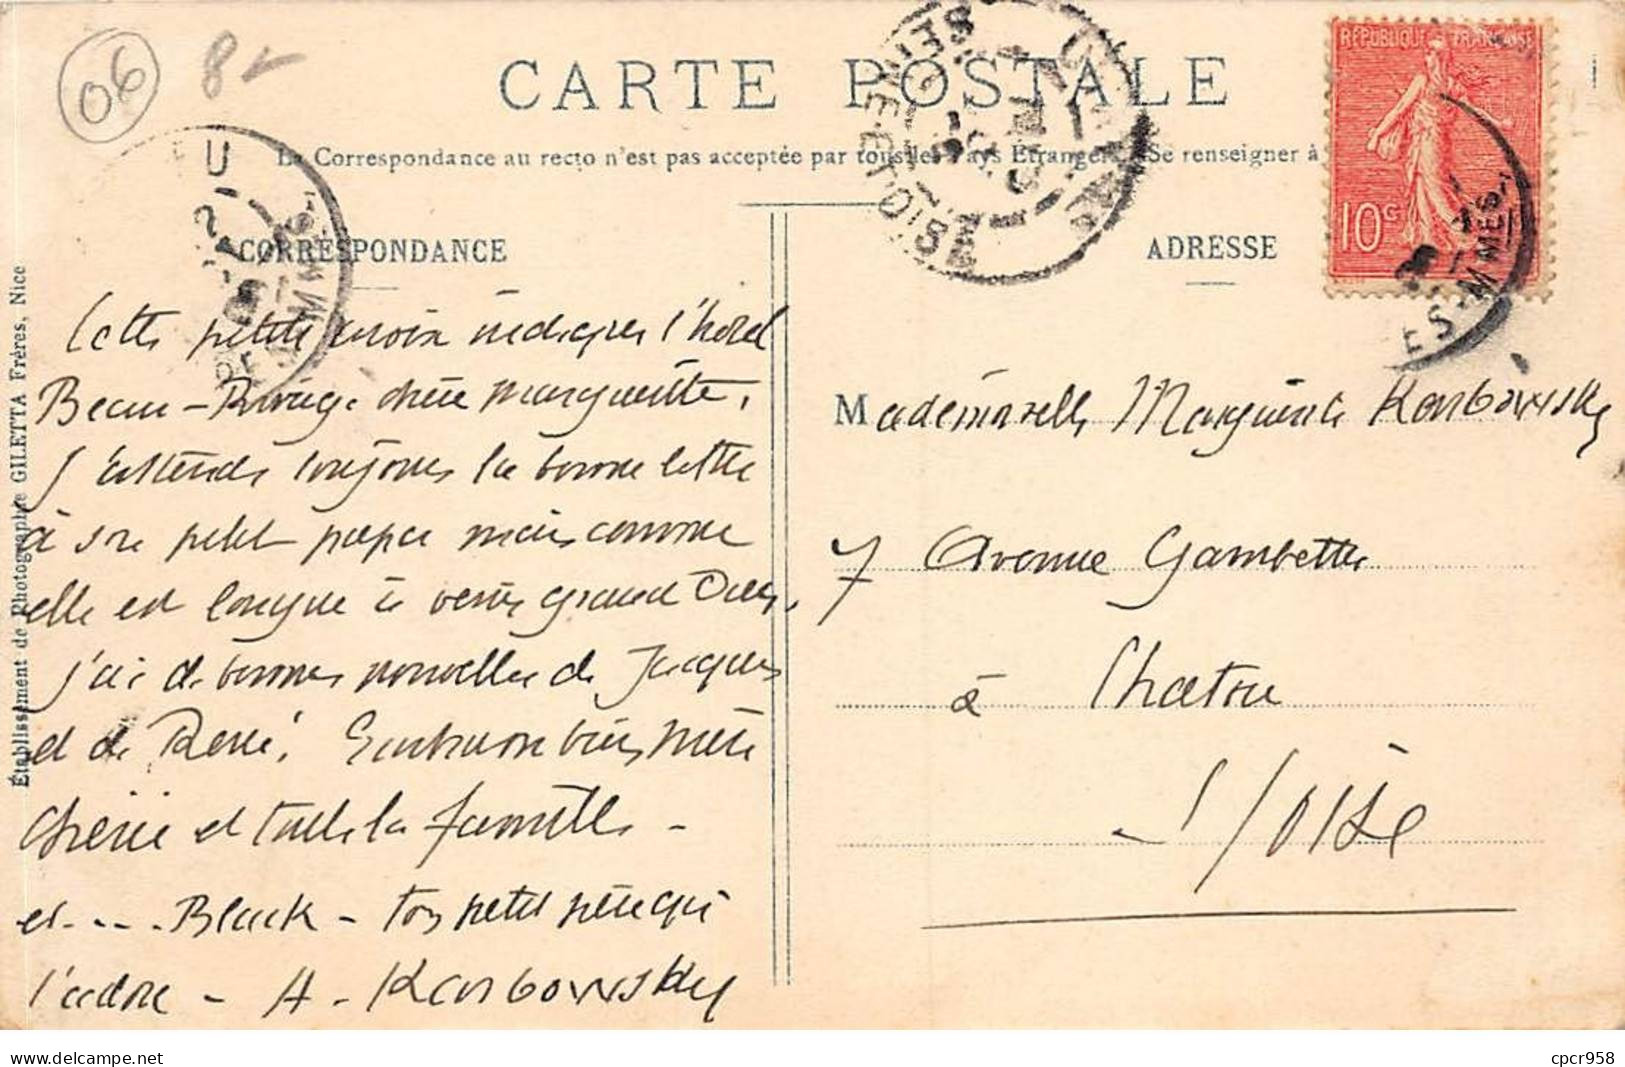 06
8
CARTE POSTALE
La Correspondance au recto n'est pas acceptée par tous les Pays Étrangers. Se renseigner à
RÉPUBLIQUE FRANÇAISE
10c
SEINE-ET-OISE
CORRESPONDANCE
ADRESSE
Établissement de Photographie GILETTA Frères, Nice
Cette petite croix indique l'hotel
Beau-Rivage chère Marguerite.
J'attends toujours la bonne lettre
à son petit papa mais comme
elle est longue à venir grand Dieu.
J'ai de bonnes nouvelles de Jacques
et de René. Embrasse bien Mère
chérie et toute la famille -
et .... Black - ton petit père qui
t'adore - A. Karbowsky
Mademoiselle Marguerite Karbowsky
7 Avenue Gambetta
à Chatou
S/Oise
cpcr958